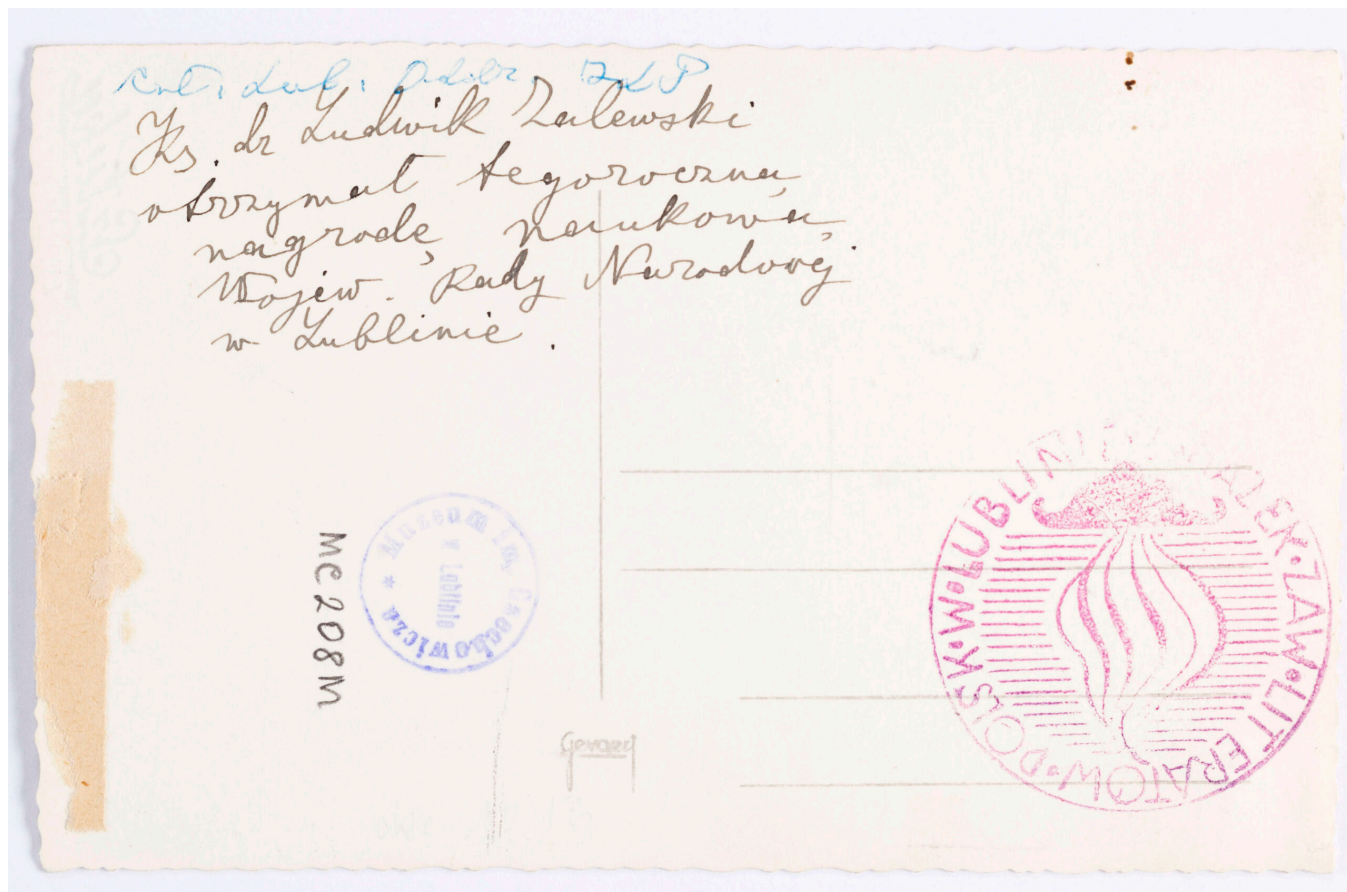 Lub. Oddz. ZLP
Ks. dr Ludwik Zalewski
otrzymał tegoroczną
nagrodę naukową
Wojew. Rady Narodowej
w Lublinie.
MC 208M
* Muzeum im. Czechowicza
w Lublinie
Gevaert
ZAW•LITERATÓW•POLSK•W•LUBLINIE